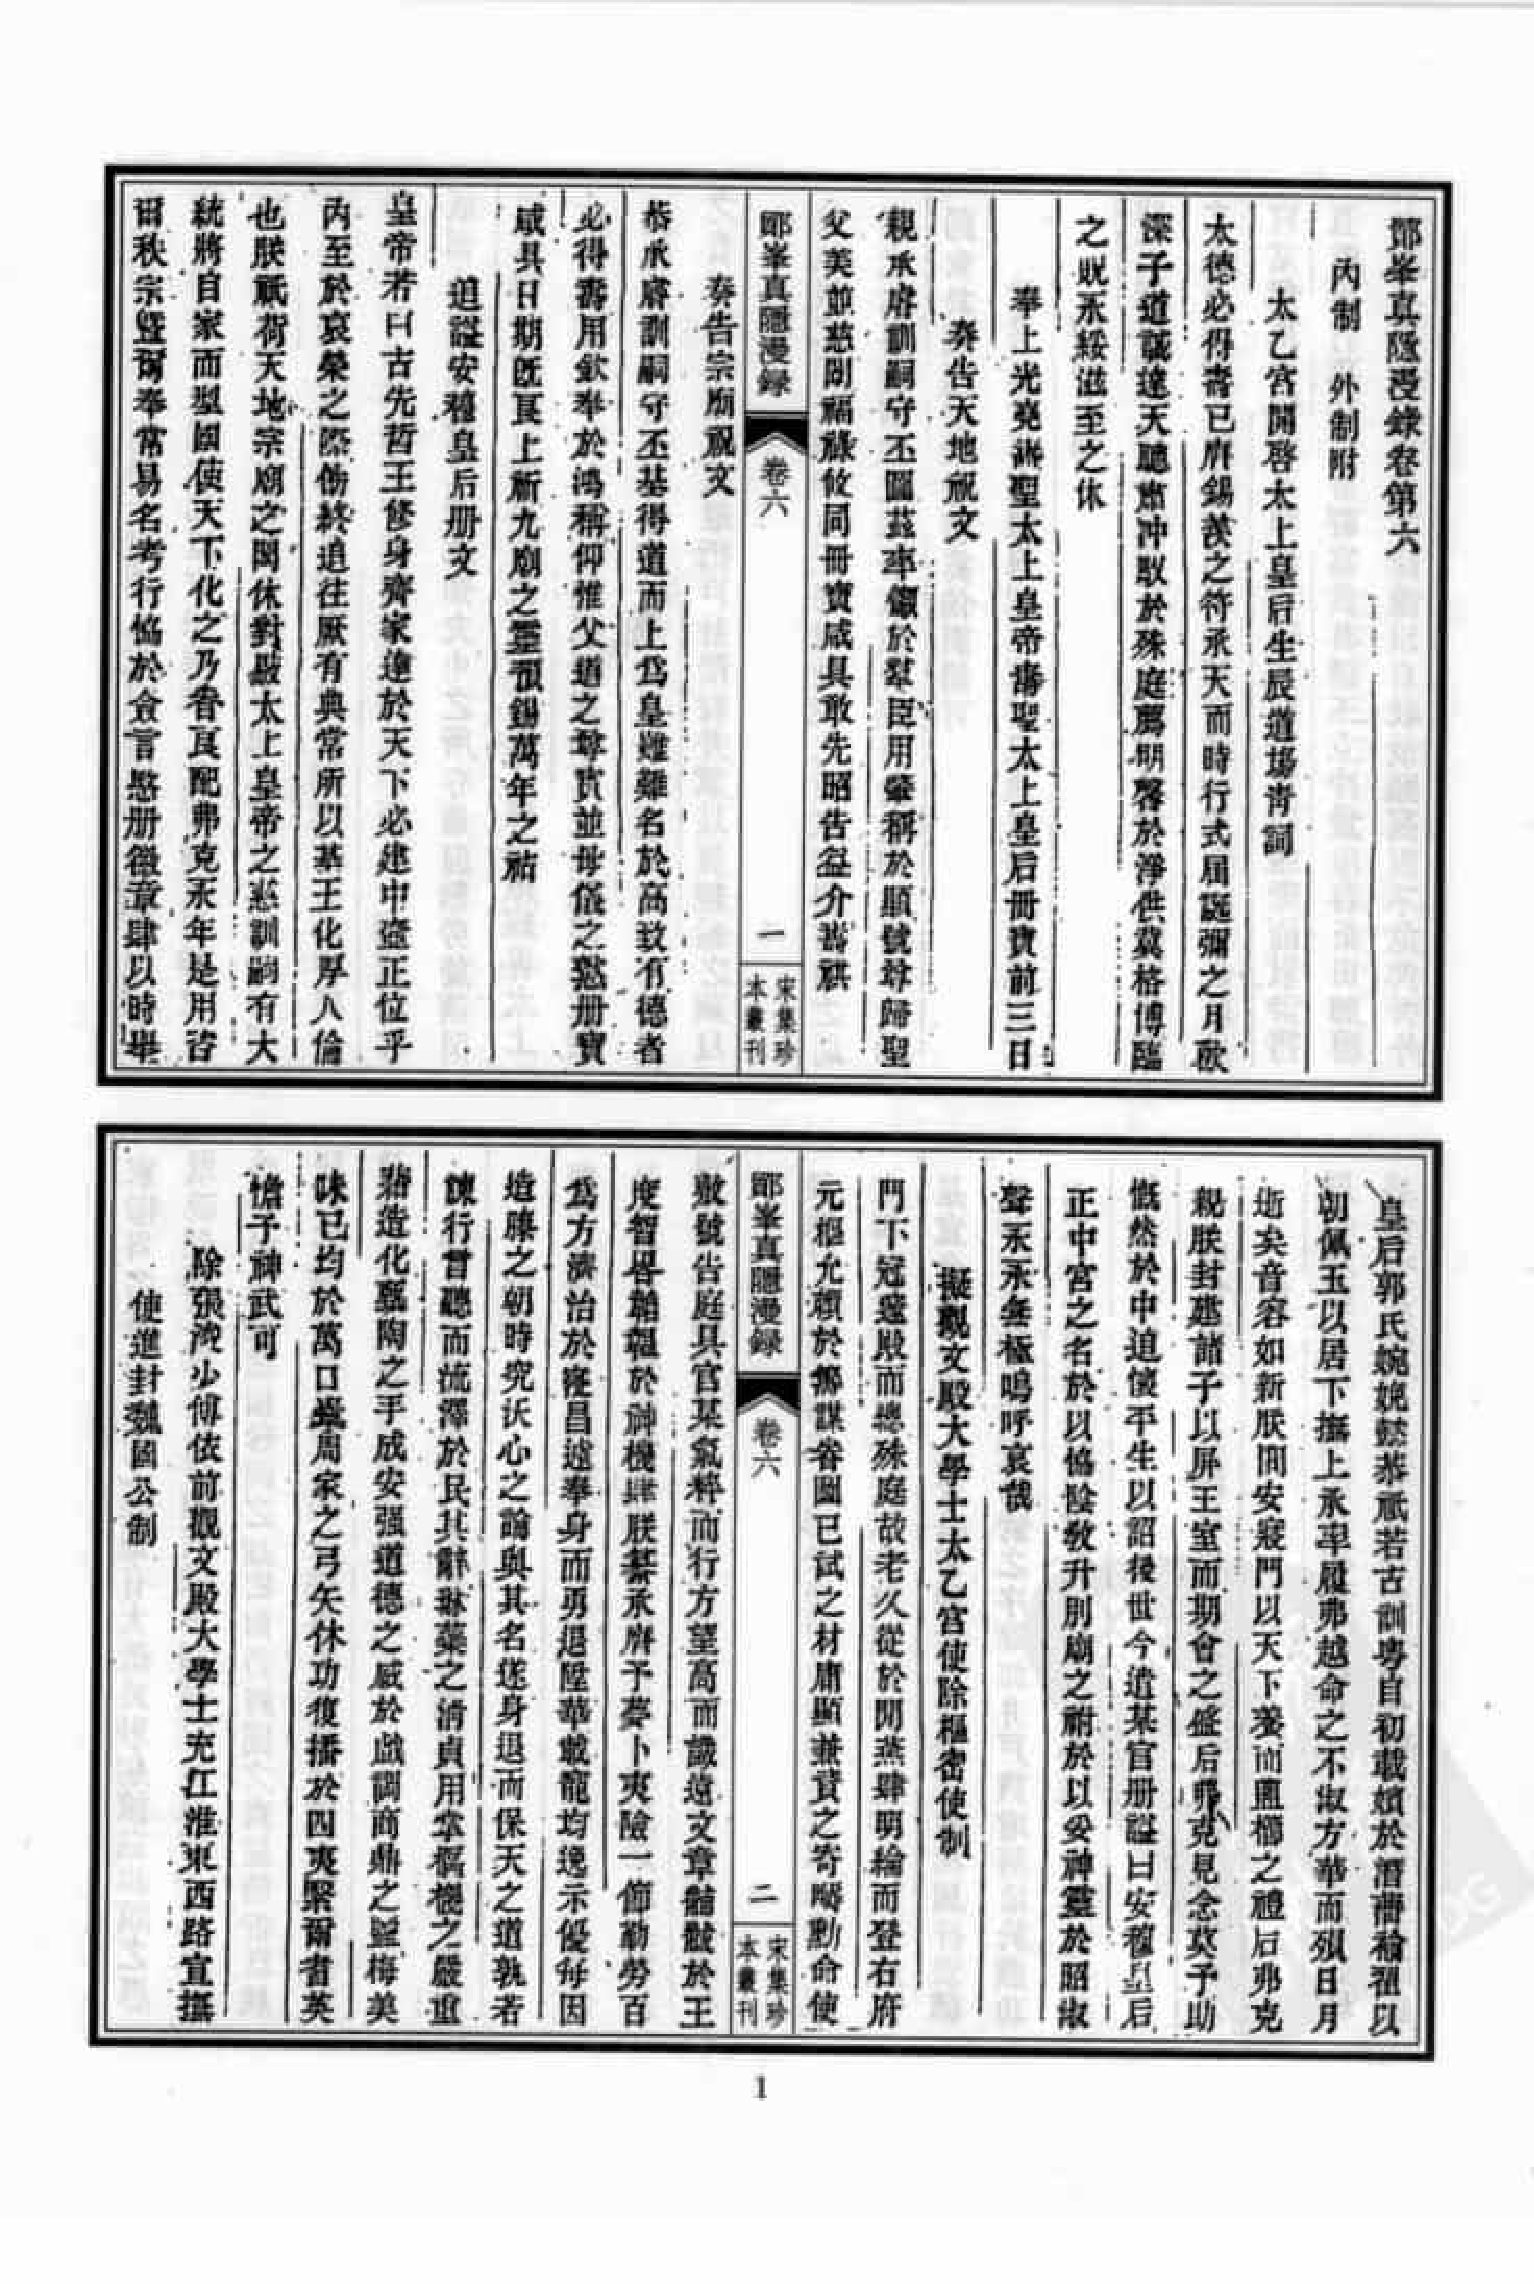 鄮峯真隱漫錄卷第六
內制 外制附
太乙宮開啓太上皇后生辰道場青詞
太德必得壽已膺錫羨之符承天而時行式屆誕彌之月歐
深子道誠達天聽肅冲馭於殊庭薦明馨於淨供冀格博臨
之貺永綏滋至之休
奉上光堯壽聖太上皇帝壽聖太上皇后冊寶前三日
奏告天地祝文
親承睿訓嗣守丕圖茲率籲於羣臣用肇稱於顯號尊歸聖
父美並慈闈福祿攸同冊寶咸具敢先昭告益介壽祺
鄮峯真隱漫録
卷六
一
宋集珍
本叢刊
奏告宗廟祝文
恭承睿訓嗣守丕基得道而上爲皇雖難名於高致有德者
必得壽用欽奉於鴻稱仰惟父道之尊實並母儀之懿册寶
咸具日期旣良上祈九廟之靈預錫萬年之祜
追諡安穆皇后册文
皇帝若曰古先哲王修身齊家達於天下必建中壼正位乎
內至於哀榮之際飭終追往厥有典常所以基王化厚人倫
也朕祇荷天地宗廟之閎休對敭太上皇帝之慈訓嗣有大
統將自家而型國使天下化之乃眷良配弗克永年是用咨
爾秩宗曁爾奉常易名考行恊於僉言愍册徽章肆以時舉
皇后郭氏婉娩懿恭祇若古訓粤自初載嬪於濳藩褕翟以
朝佩玉以居下撫上承率履弗越命之不淑方華而殞日月
逝矣音容如新朕問安寢門以天下養而盥櫛之禮后弗克
親朕封建諸子以屏王室而期會之盛后弗克見念莫予助
慨然於中追懷平生以詔後世今遣某官册諡曰安穆皇后
正中宮之名於以恊陰敎升別廟之祔於以妥神靈於昭淑
聲永永無極嗚呼哀哉
擬觀文殿大學士太乙宮使除樞密使制
門下冠邃殿而總殊庭故老久從於閒燕肆明綸而登右府
元樞允頼於鄉謀眷圖已試之材庸顯兼資之寄疇勳命使
鄮峯真隱漫録
卷六
二
宋集珍
本叢刊
敷號告庭具官某氣粹而行方望高而識遠文章黼黻於王
度智畧韜韞於神機肆朕纂承膺予夢卜夷險一節勤勞百
爲方濟治於寖昌遽奉身而勇退陞華載寵均逸示優每因
造膝之朝時究沃心之論與其名遂身退而保天之道孰若
諫行言聽而流澤於民其辭珠蘂之淸貞用掌樞機之嚴重
辔造化甄陶之手成安强道德之威於戲調商鼎之鹽梅美
味已均於萬口櫜周家之弓矢休功復播於四夷繄爾耆英
憺予神武可
除張浚少傅依前觀文殿大學士充江淮東西路宣撫
使進封魏國公制
1